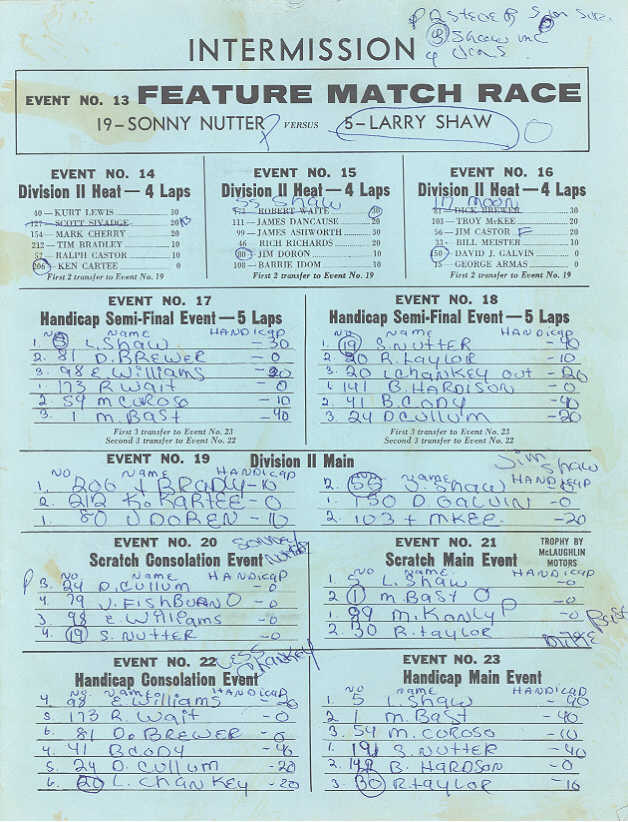 INTERMISSION
EVENT NO. 13 FEATURE MATCH RACE
19–SONNY NUTTER VERSUS 5–LARRY SHAW
EVENT NO. 14
Division II Heat — 4 Laps
40—KURT LEWIS 30
127—SCOTT SIVADGE 20
154—MARK CHERRY 20
212—TIM BRADLEY 10
57—RALPH CASTOR 10
206—KEN CARTEE 0
First 2 transfer to Event No. 19
EVENT NO. 15
Division II Heat — 4 Laps
55 Shaw
ROBERT WAITE 30
111—JAMES DANCAUSE 20
99—JAMES ASHWORTH 30
46 RICH RICHARDS 20
80—JIM DORON 0
100—BARRIE IDOM 0
First 2 transfer to Event No. 19
EVENT NO. 16
Division II Heat — 4 Laps
81—DICK BREWER
103—TROY McKEE 20
56—JIM CASTOR F 20
33—BILL MEISTER 10
50—DAVID J. GALVIN 0
15—GEORGE ARMAS 0
First 2 transfer to Event No. 19
EVENT NO. 17
Handicap Semi-Final Event — 5 Laps
NO NAME HANDICAP
1. 5 L. Shaw — 30
2. 81 D. BREWER — 0
3. 98 E. Williams — 20
1. 173 R. Wait — 0
2. 54 M. COROSO — 10
3. 1 M. BAST — 40
First 3 transfer to Event No. 23
Second 3 transfer to Event No. 22
EVENT NO. 18
Handicap Semi-Final Event — 5 Laps
NO NAME HANDICAP
1. 19 S. NUTTER — 40
2. 30 R. taylor — 10
3. 20 L chankey out — 20
1. 141 B. HARDISON — 0
2. 41 B. CODY — 40
3. 24 D CULLUM — 20
First 3 transfer to Event No. 23
Second 3 transfer to Event No. 22
EVENT NO. 19 Division II Main
NO NAME HANDICAP
1. 206 t BRADY — 10
2. 212 K. KARTEE — 0
1. 80 J DOREN — 10
Jim Shaw
NO NAME HANDICAP
2. 55 J. Shaw — 0
1. 150 D GALVIN — 0
2. 103 t MKEE. — 20
EVENT NO. 20
Scratch Consolation Event
SONNEY NUTTER
NO NAME HANDICAP
3. 24 D. CULLUM — 0
4. 79 J. FISHBURN O — 0
3. 98 E. Williams — 0
4. 19 S. NUTTER — 0
EVENT NO. 21
Scratch Main Event
TROPHY BY
McLAUGHLIN
MOTORS
NO NAME HANDICAP
1. 5 L. Shaw — 0
2. 1 M. BAST O — 0
1. 89 M. Kanly P — 0
2. 30 R. taylor — 0
EVENT NO. 22
Handicap Consolation Event
LESS CHANKEY
NO NAME HANDICAP
4. 98 E. Williams — 20
5. 173 R. Wait — 0
6. 81 D. BREWER — 0
4. 41 B CODY — 40
5. 24 D. CULLUM — 20
6. 20 L. CHANKEY — 20
EVENT NO. 23
Handicap Main Event
NO NAME HANDICAP
1. 5 L. Shaw — 40
2. 1 M. BAST — 40
3. 54 M. COROSO — 10
1. 19 S. NUTTER — 40
2. 141 B. HARDSON — 0
3. 30 R. taylor — 10